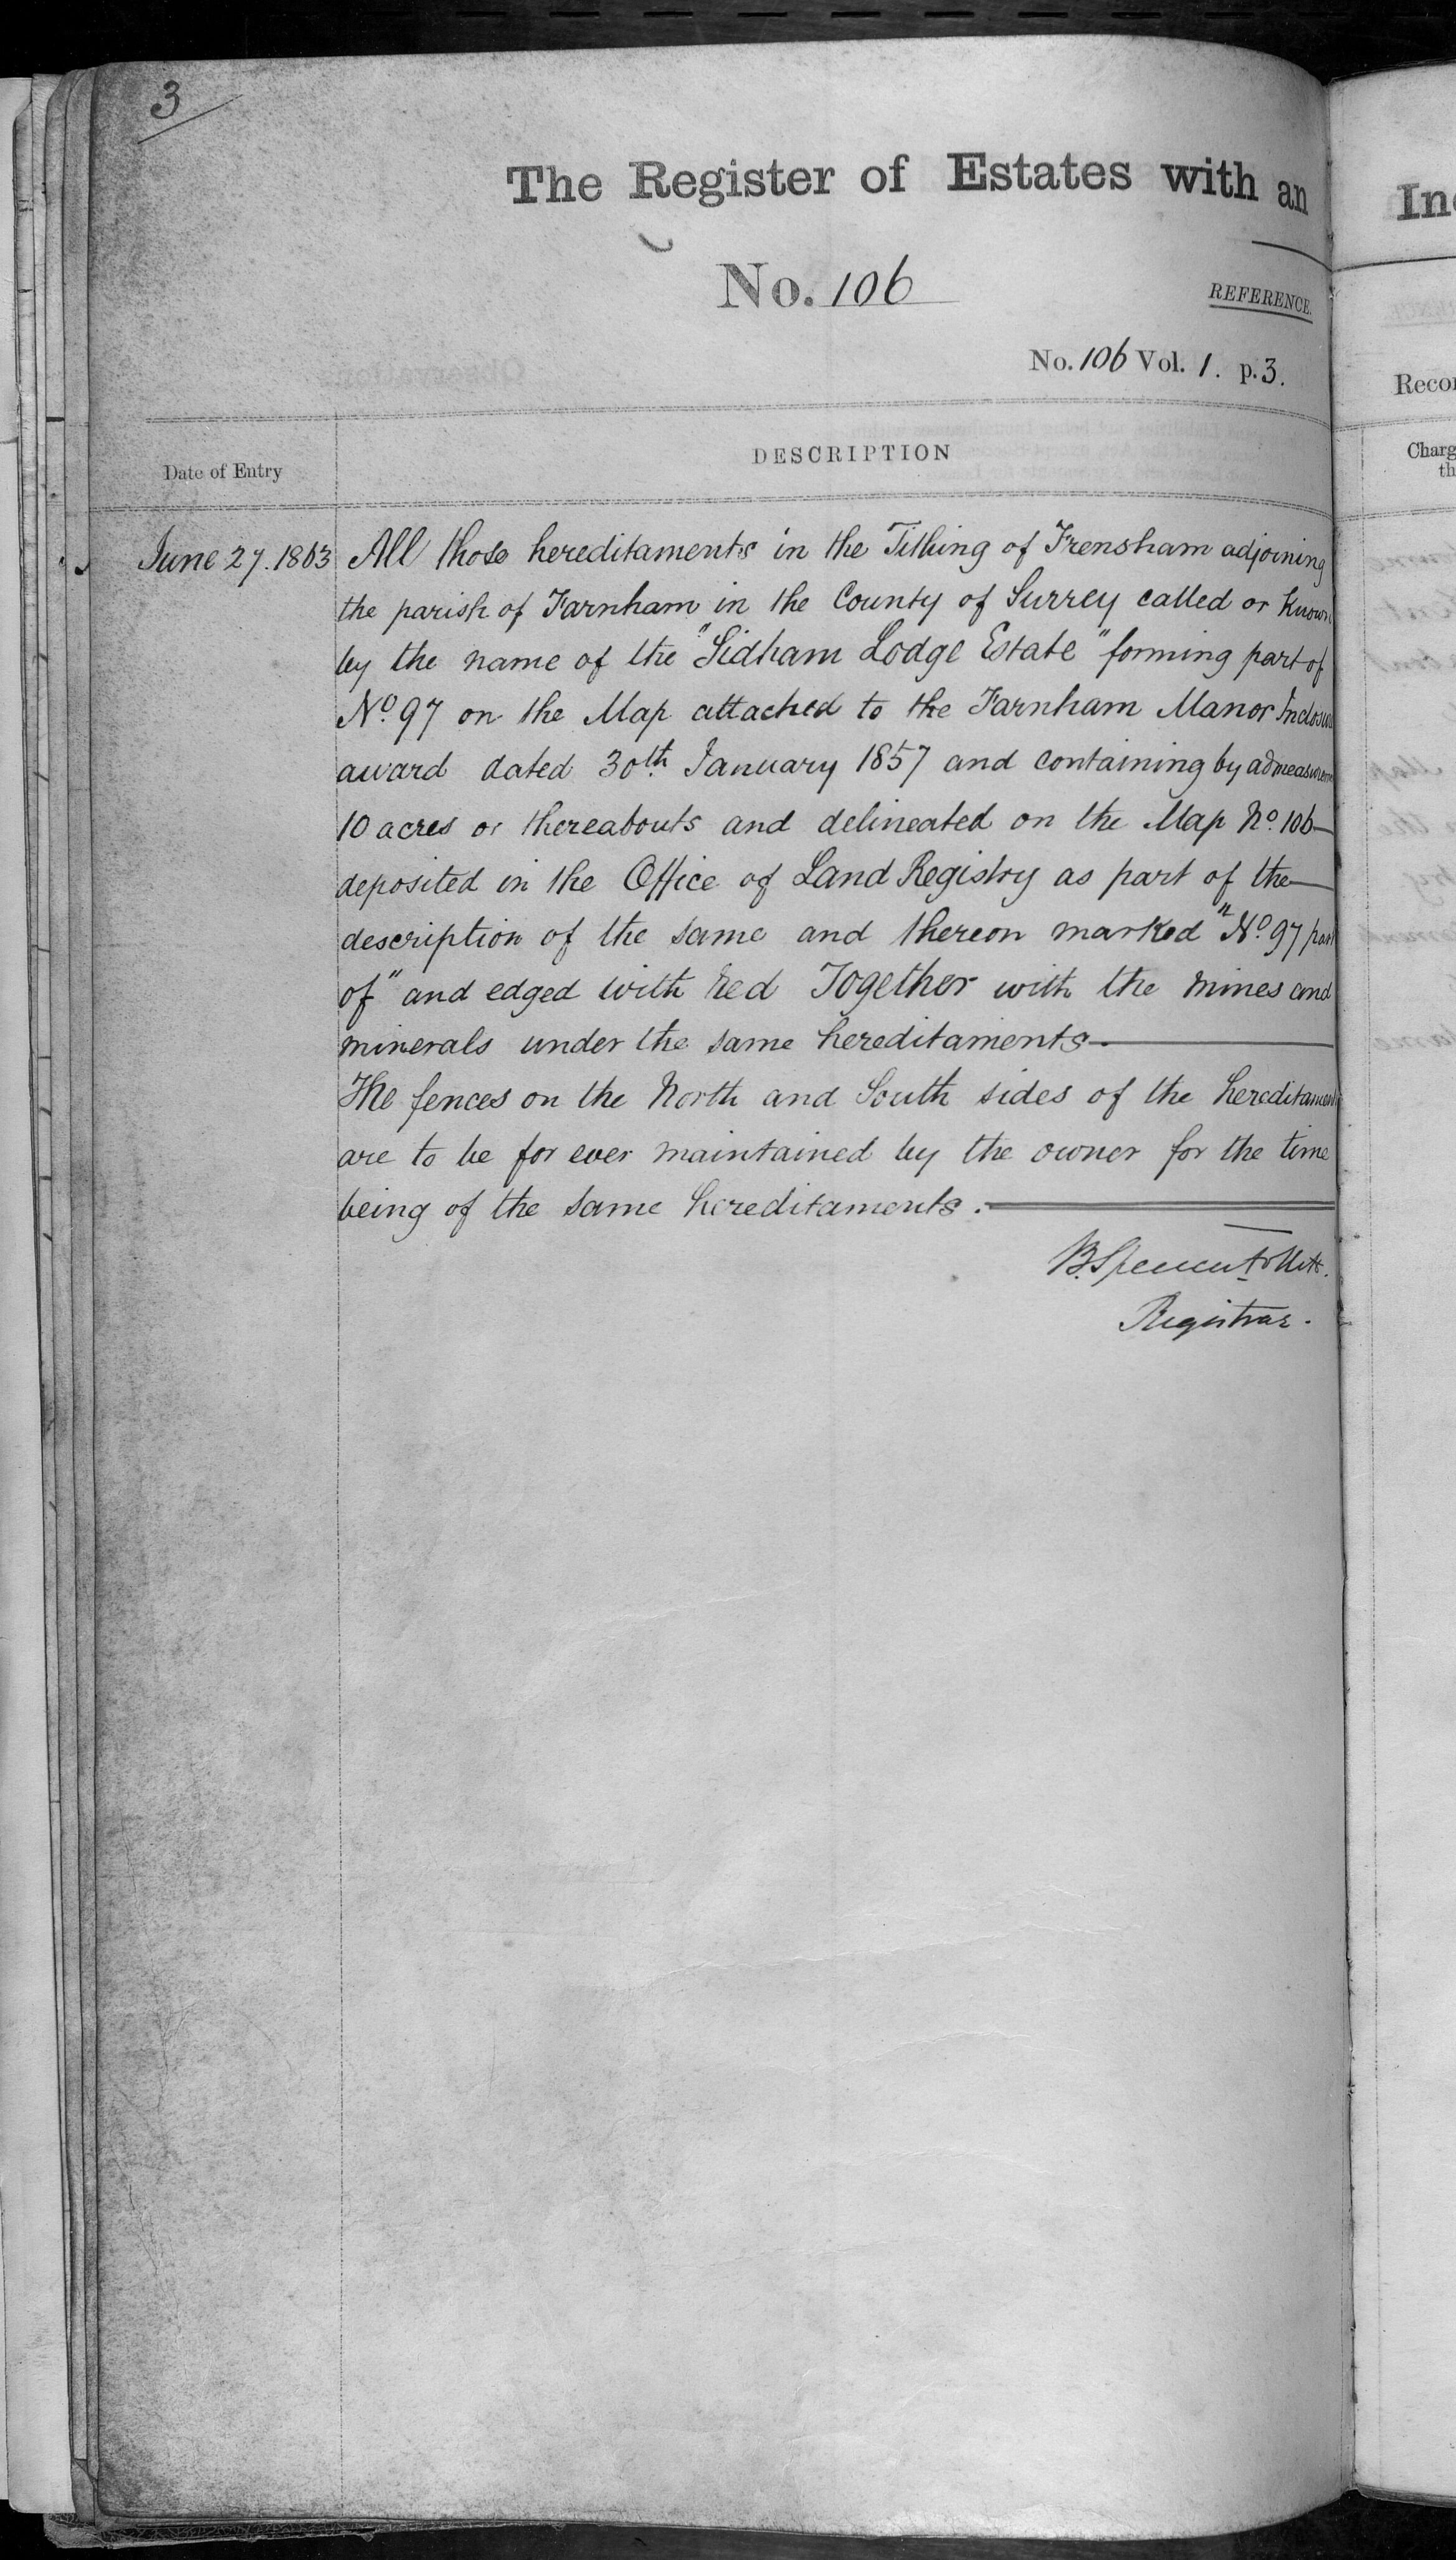 3
The Register of Estates with an
No. 106
REFERENCE.
No. 106 Vol. 1. p. 3.
Date of Entry
DESCRIPTION
June 27. 1863 All those hereditaments in the Tithing of Frensham adjoining
the parish of Farnham in the County of Surrey called or known
by the name of the "Sidham Lodge Estate" forming part of
No. 97 on the Map attached to the Farnham Manor Inclosu
award dated 30th January 1857 and containing by admeasurem
10 acres or thereabouts and delineated on the Map No. 106
deposited in the Office of Land Registry as part of the
description of the same and thereon marked "No. 97 part
of" and edged with red Together with the mines and
minerals under the same hereditaments
The fences on the North and South sides of the hereditament
are to be for ever maintained by the owner for the time
being of the same hereditaments.
Registrar.
In
Recor
Charg
th